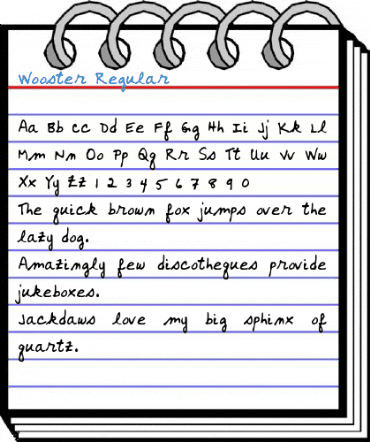 Wooster Regular
Aa Bb Cc Dd Ee Ff Gg Hh Ii Jj Kk Ll
Mm Nn Oo Pp Qq Rr Ss Tt Uu Vv Ww
Xx Yy Zz 1 2 3 4 5 6 7 8 9 0
The quick brown fox jumps over the
lazy dog.
Amazingly few discotheques provide
jukeboxes.
Jackdaws love my big sphinx of
quartz.